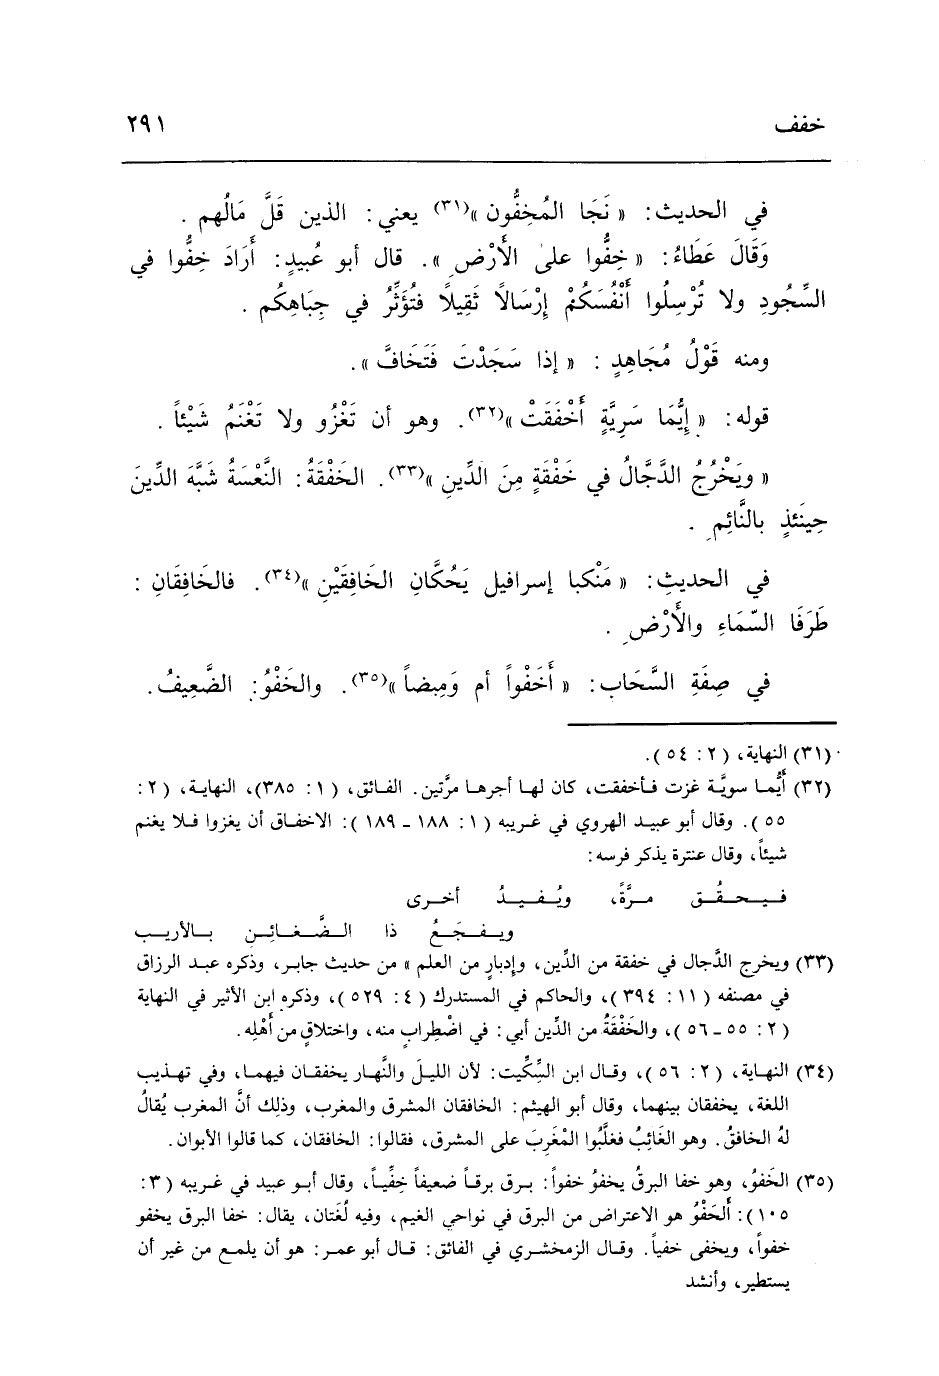 خفف ٢٩١
في الحديث: « نَجَا المُخِفُّون »(٣١) يعني: الذين قَلَّ مَالُهم .
وَقَالَ عَطَاءُ: « خِفُّوا على الأَرْضِ ». قال أبو عُبيدٍ: أَرَادَ خِفُّوا في
السِّجُودِ ولا تُرْسِلُوا أَنْفُسَكُمْ إِرْسَالاً ثَقِيلاً فَتُؤَثِّرُ في جِبَاهِكُم .
ومنه قَوْلُ مُجَاهِدٍ : « إذا سَجَدْتَ فَتَخَافَّ ».
قوله: « إِيُّمَا سَرِيَّةٍ أَخْفَقَتْ »(٣٢). وهو أن تَغْزُو ولا تَغْنَمُ شَيْئاً .
« ويَخْرُجُ الدَّجَّالُ في خَفْقَةٍ مِنَ الدِّينِ »(٣٣). الخَفْقَةُ: النَّعْسَةُ شَبَّهَ الدِّينَ
حِينَئذٍ بالنَّائِمِ .
في الحديثِ: « مَنْكبا إسرافيل يَحُكَّانِ الخَافِقَيْنِ »(٣٤). فالخَافِقَانِ :
طَرَفَا السّمَاءِ والأَرْضِ .
في صِفَةِ السَّحَاب: « أَخَفْواً أم وَمِيضاً »(٣٥). والخَفْوُ: الضَّعِيفُ.
(٣١) النهاية، (٢: ٥٤).
(٣٢) أَيُّمـا سويَّة غزت فـأخفقت، كان لهـا أجرهـا مرَّتين. الفـائق، (١: ٣٨٥)، النهايـة، (٢:
٥٥). وقال أبو عبيـد الهروي في غـريبه (١: ١٨٨ ـ ١٨٩): الاخفـاق أن يغزوا فـلا يغنم
شيئاً، وقال عنترة يذكر فرسه:
فـيـحـقُـق مـرَّةً، ويُـفـيـدُ أخـرى
ويـفـجَـعُ ذا الـضَّـغـائِـن بـالأريـب
(٣٣) ويخرج الدَّجال في خفقة من الدِّين، وإدبارٍ من العلم » من حديث جابر، وذكره عبـد الرزاق
في مصنفه (١١: ٣٩٤)، والحاكم في المستدرك (٤: ٥٢٩)، وذكره ابن الأثير في النهاية
(٢: ٥٥ ـ ٥٦)، والخَفْقَةُ من الدِّين أبي: في اضْطِرابٍ منه، واختلاقٍ من أَهْلِه.
(٣٤) النهـاية، (٢: ٥٦)، وقـال ابن السِّكِّيت: لأن الليلَ والنَّهار يخفقـان فيهمـا، وفي تهـذيب
اللغة، يخفقان بينهما، وقال أبو الهيثم: الخافقان المشرق والمغرب، وذلك أنَّ المغرب يُقالُ
لهُ الخافقُ. وهو الغَائِبُ فغلَّبُوا المْغَربَ على المشرق، فقالوا: الخافقان، كما قالوا الأبوان.
(٣٥) الخَفوُ، وهو خفا البرقُ يخفوُ خفواً: بـرق برقـاً ضعيفاً خِفِّيـاً، وقال أبـو عبيد في غريبه (٣:
١٠٥): أَلخَفْوُ هو الاعتراض من البرق في نواحي الغيم، وفيه لُغَتان، يقال: خفا البرق يخفو
خفواً، ويخفى خفياً. وقـال الزمخشـري في الفائق: قـال أبو عمـر: هو أن يلمـع من غير أن
يستطير، وأنشد